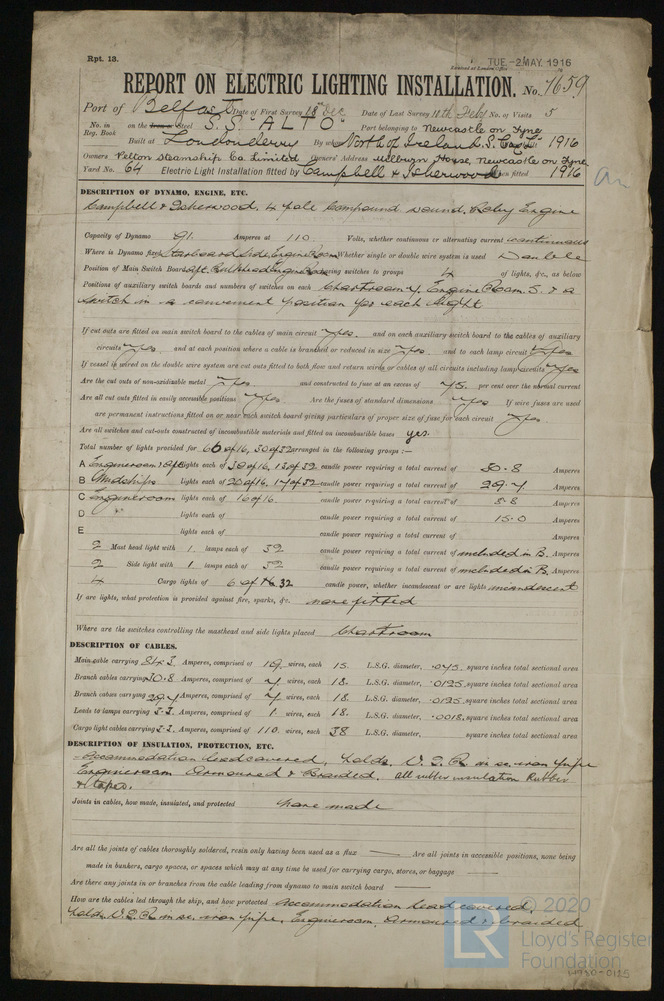 Rpt. 13.
TUE. -2 MAY. 1916
Received at London Office
REPORT ON ELECTRIC LIGHTING INSTALLATION. No. 7659
Port of Belfast Date of First Survey 18th Dec Date of Last Survey 11th Feby No. of Visits 5
No. in Reg. Book on the Iron or Steel S.S. "ALTO" Port belonging to Newcastle on Tyne
Built at Londonderry By whom North of Ireland S. Co. Ld. 1916
Owners Pelton Steamship Co Limited Owners' Address Milburn House, Newcastle on Tyne
Yard No. 64 Electric Light Installation fitted by Campbell & Isherwood When fitted 1916
DESCRIPTION OF DYNAMO, ENGINE, ETC.
Campbell & Isherwood. 4 pole compound wound. Engine
Capacity of Dynamo 91 Amperes at 110 Volts, whether continuous or alternating current continuous
Where is Dynamo fixed Starboard Side Engine Room Whether single or double wire system is used Double
Position of Main Switch Board aft Bulkhead Engine Room having switches to groups 4 of lights, &c., as below
Positions of auxiliary switch boards and numbers of switches on each Chartroom 4, Engine Room. 5. & a
switch in a convenient position for each light
If cut outs are fitted on main switch board to the cables of main circuit yes and on each auxiliary switch board to the cables of auxiliary
circuits yes and at each position where a cable is branched or reduced in size yes and to each lamp circuit yes
If vessel is wired on the double wire system are cut outs fitted to both flow and return wires or cables of all circuits including lamp circuits yes
Are the cut outs of non-oxidizable metal yes and constructed to fuse at an excess of 75 per cent over the normal current
Are all cut outs fitted in easily accessible positions yes Are the fuses of standard dimensions yes If wire fuses are used
are permanent instructions fitted on or near each switch board giving particulars of proper size of fuse for each circuit yes
Are all switches and cut-outs constructed of incombustible materials and fitted on incombustible bases yes.
Total number of lights provided for 66 of 16, 30 of 32 arranged in the following groups :—
A Engineroom & Aft lights each of 30 of 16, 13 of 32 candle power requiring a total current of 30.8 Amperes
B Midships lights each of 20 of 16, 17 of 32 candle power requiring a total current of 29.7 Amperes
C Engineroom lights each of 16 of 16 candle power requiring a total current of 8.8 Amperes
D lights each of candle power requiring a total current of 15.0 Amperes
E lights each of candle power requiring a total current of Amperes
2 Mast head light with 1 lamps each of 32 candle power requiring a total current of included in B. Amperes
2 Side light with 1 lamps each of 32 candle power requiring a total current of included in B. Amperes
4 Cargo lights of 6 of 16 32 candle power, whether incandescent or arc lights incandescent
If arc lights, what protection is provided against fire, sparks, &c. none fitted
Where are the switches controlling the masthead and side lights placed Chartroom
DESCRIPTION OF CABLES.
Main cable carrying 84.3 Amperes, comprised of 19 wires, each 15 L.S.G. diameter, .075 square inches total sectional area
Branch cables carrying 30.8 Amperes, comprised of 7 wires, each 18 L.S.G. diameter, .0125 square inches total sectional area
Branch cables carrying 29.7 Amperes, comprised of 7 wires, each 18 L.S.G. diameter, .0125 square inches total sectional area
Leads to lamps carrying 3.3 Amperes, comprised of 1 wires, each 18 L.S.G. diameter, .0018 square inches total sectional area
Cargo light cables carrying 3.3 Amperes, comprised of 110 wires, each 38 L.S.G. diameter, square inches total sectional area
DESCRIPTION OF INSULATION, PROTECTION, ETC.
Accommodation leadcovered, holds V.I.R. in sc. iron pipe
Engineroom Armoured & Braided. all rubber insulation Rubber
& tapes.
Joints in cables, how made, insulated, and protected none made
Are all the joints of cables thoroughly soldered, resin only having been used as a flux — Are all joints in accessible positions, none being
made in bunkers, cargo spaces, or spaces which may at any time be used for carrying cargo, stores, or baggage —
Are there any joints in or branches from the cable leading from dynamo to main switch board —
How are the cables led through the ship, and how protected Accommodation leadcovered,
holds V.I.R. in sc. iron pipe, Engineroom, Armoured & braided
© 2020
LR
Lloyd's Register
Foundation